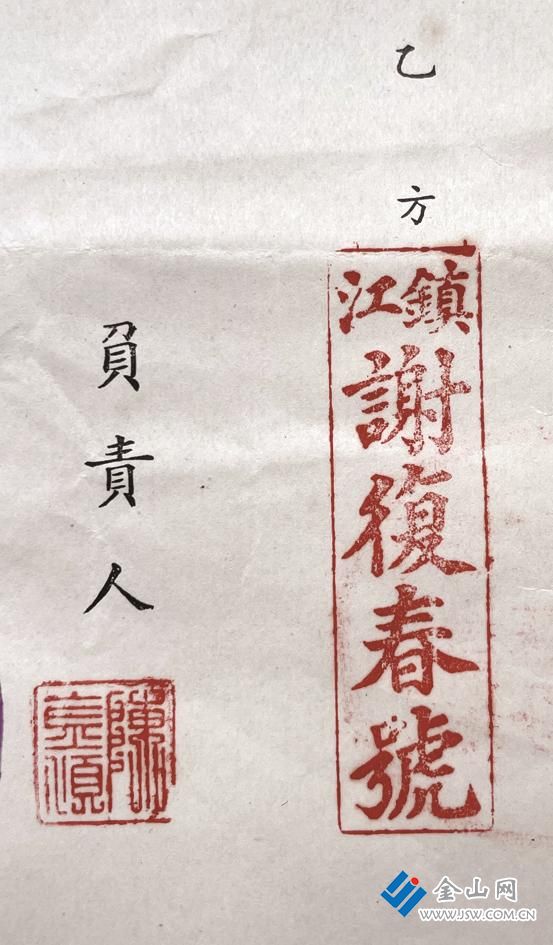 乙方
鎮江
謝復春號
負責人
金山网
WWW.JSW.COM.CN